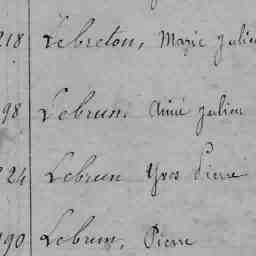 218 Lebreton, Marie Julie
98 Lebrun, Aimé Julien
224 Lebrun Yves Pierre
190 Lebrun, Pierre